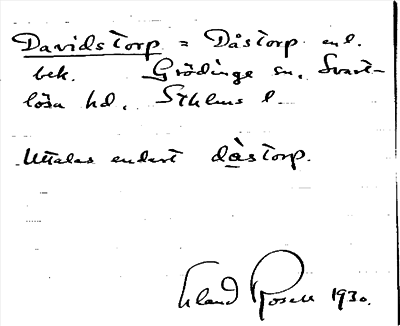 Davidstorp = Dåstorp enl.
bek. Grödinge sn, Svart-
lösa hd, Sthlms l.
Uttalas endast dåstorp.
Erland Rosell 1930.